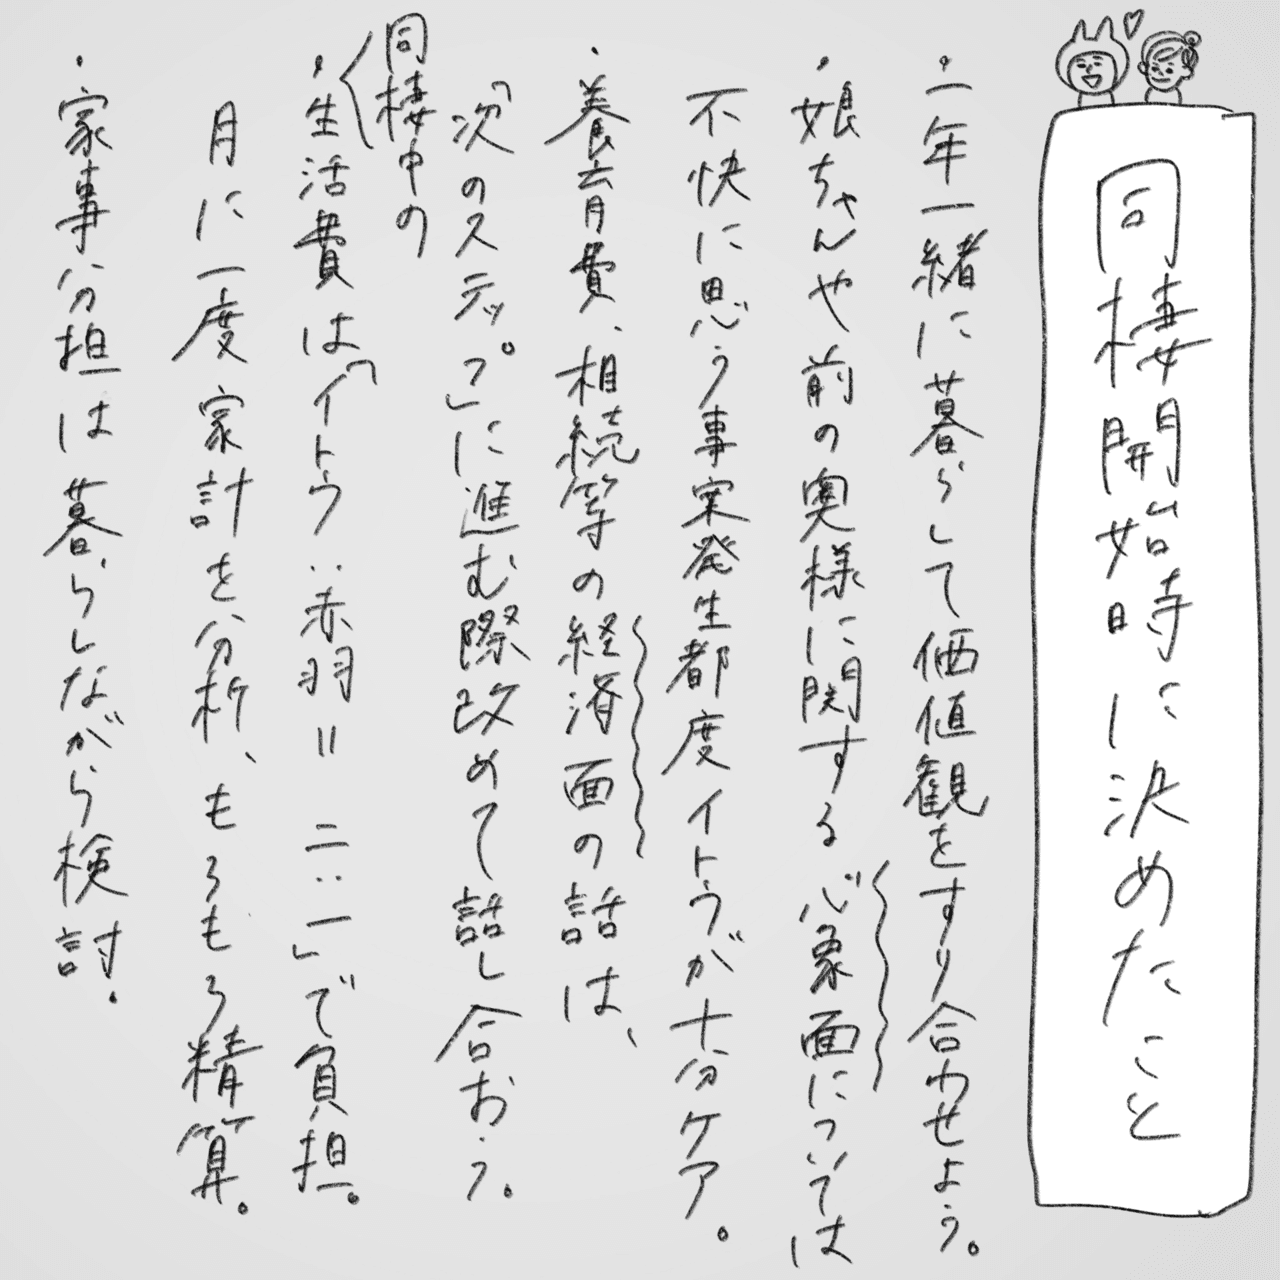 同棲開始時に決めたこと
・二年一緒に暮らして価値観をすり合わせよう。
・娘ちゃんや前の奥様に関する心象面については
不快に思う事案発生都度イトウが十分ケア。
・養育費、相続等の経済面の話は、
「次のステップ」に進む際改めて話し合おう。
同棲中の
・生活費は「イトウ:赤羽=二:一」で負担。
月に一度家計を分析、もろもろ精算。
・家事分担は暮らしながら検討.